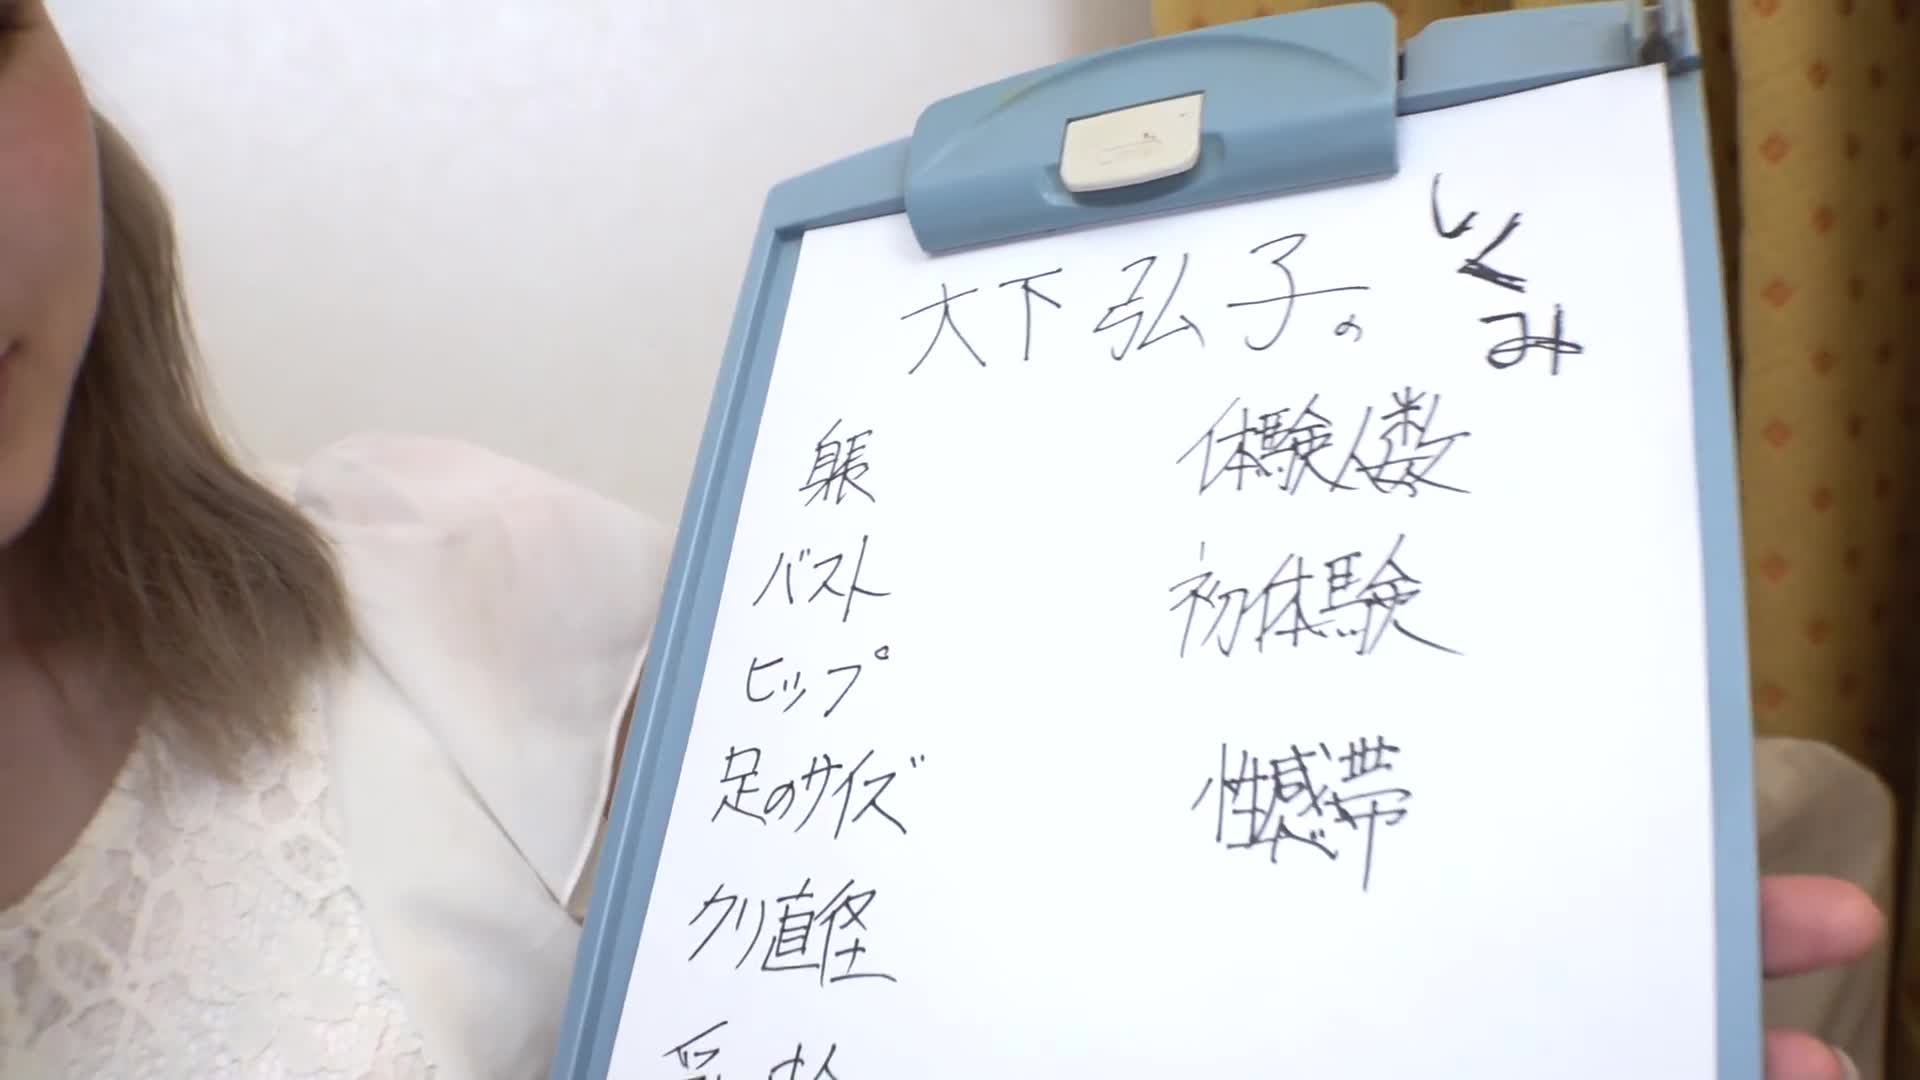 大下弘子の
しくみ
身長
バスト
ヒップ
足のサイズ
クリ直径
体験人数
初体験
性感帯